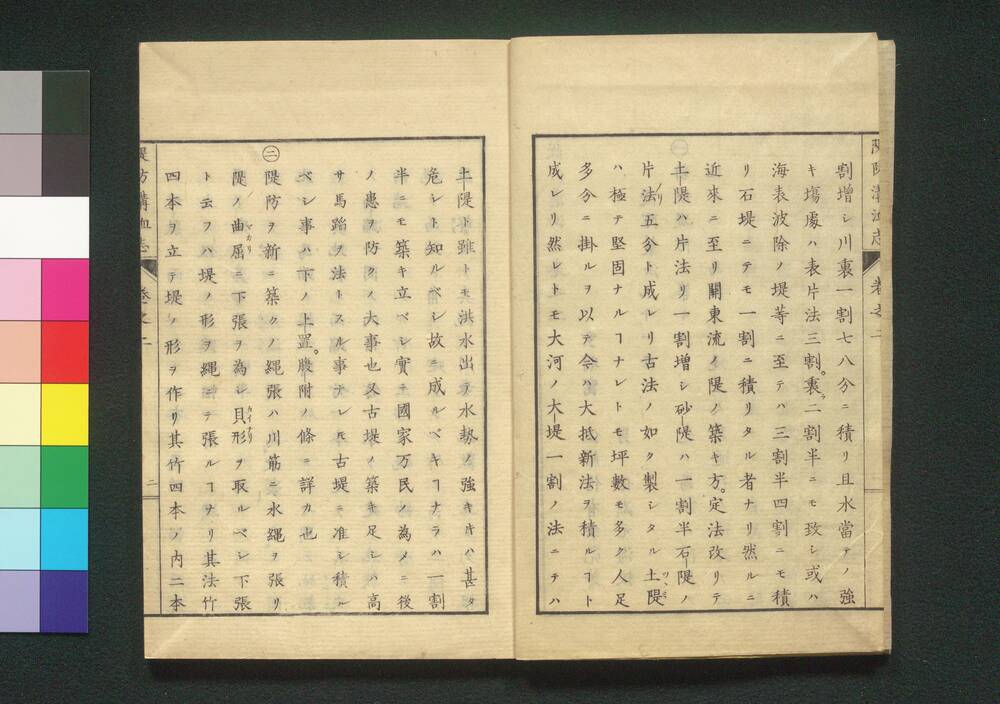 堤防溝洫志 卷之二
割増シ川裏一割七八分ニ積リ且水當テノ強
キ塲處ハ表片法三割。裏二割半ニモ致シ或ハ
海表波除ノ堤等ニ至テハ三割半四割ニモ積
リ石堤ニテモ一割ニ積リタル者ナリ然ルニ
近來ニ至リ關東流ノ隄ノ築キ方。定法改リテ
土隄ハ片法リ一割増シ砂隄ハ一割半石隄ノ
片法五分ト成レリ古法ノ如ク製シタル土隄
ハ極テ堅固ナルヿナレトモ坪數モ多ク人足
多分ニ掛ルヲ以テ今ハ大抵新法ヲ積ルヿト
成レリ然レトモ大河ノ大堤一割ノ法ニテハ
土隄ト雖トモ洪水出テ水勢ノ強キキハ甚タ
危シト知ルベシ故ニ成ルベキヿナラハ一割
半ニモ築キ立ベシ實ニ國家万民ノ為メニ後
ノ患ヲ防クノ大事也又古堤ノ築キ足シハ高
サ馬踏ヲ法トスル事ナレ𪜈古堤ニ准シ積ル
ベシ事ハ下ノ上置。腹附ノ條ニ詳カ也
㊁隄防ヲ新ニ築クノ繩張ハ川筋ニ水繩ヲ張リ
隄ノ曲屈ニ下張ヲ為シ貝形ヲ取ルベシ下張
ト云フハ堤ノ形ヲ繩ニテ張ルヿナリ其法竹
四本ヲ立テ堤ノ形ヲ作リ其竹四本ノ内二本
堤防溝洫志 卷之二 二